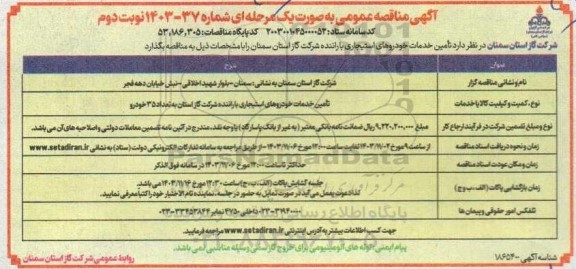 آگهی مناقصه عمومی به صورت یک مرحله ای شماره ۳۷-۱۴۰۳ نوبت دوم
کد سامانه ستاد: ۲۰۰۳۰۰۱۰۴۵۰۰۰۰۵۴ کد پایگاه ناقصات: ۵۳,۱۸۶,۳۰۵
شرکت گاز استان سمنان در نظر دارد تأمین خدمات خودروهای استیجاری با راننده شرکت گاز استان سمنان را با مشخصات ذیل به مناقصه بگذارد
عنوان شرح
نام و نشانی مناقصه گزار شرکت گاز استان سمنان به نشانی: سمنان - بلوار شهید اخلاقی - نبش خیابان دهه فجر
نوع، کمیت و کیفیت کالا یا خدمات تأمین خدمات خودروهای استیجاری با راننده شرکت گاز استان سمنان به تعداد ۳۵ خودرو
نوع و مبلغ تضمین شرکت در فرآیند ارجاع کار مبلغ ۹,۲۲۰,۲۰۰,۰۰۰ ریال ضمانت نامه بانکی معتبر (به غیر از بانک پاسارگاد) یا وجه نقد، مندرج در آئین نامه تضمین معاملات دولتی و اصلاحیه های آن می باشد.
زمان و نحوه دریافت اسناد مناقصه از ساعت ۹ مورخ ۱۴۰۳/۱۱/۰۲ لغایت ساعت ۱۴:۰۰ مورخ ۱۴۰۳/۱۱/۰۶ - از طریق مراجعه به سامانه تدارکات الکترونیکی دولت (ستاد) به نشانی www.setadiran.ir
زمان و مکان عودت اسناد مناقصه حداکثر تا ساعت ۱۴:۰۰ مورخ ۱۴۰۳/۱۱/۱۶ در سامانه فوق الذکر
زمان بازگشایی پاکات (الف، ب و ج) جلسه گشایش پاکات (الف، ب، ج) ساعت ۱۴:۳۰ مورخ ۱۴۰۳/۱۱/۱۶ می باشد.
در صورت تمایل به حضور در جلسه، نماینده تام الاختیار خود را کتباً معرفی نمایید.
تلفکس امور حقوقی و پیمان ها ۰۲۳-۳۱۹۴۰۰۰۰ داخلی ۴۷۵۰ نمابر ۰۲۳-۳۳۴۵۳۸۴۴
جهت کسب اطلاعات بیشتر به آدرس اینترنتی www.setadiran.ir مراجعه فرمایید.
پیام ایمنی: لوله های آلومینیومی برای خروج گاز آبی وسیله مناسبی نمی باشد.
شناسه آگهی - ۱۸۶۵۴۰ روابط عمومی شرکت گاز استان سمنان